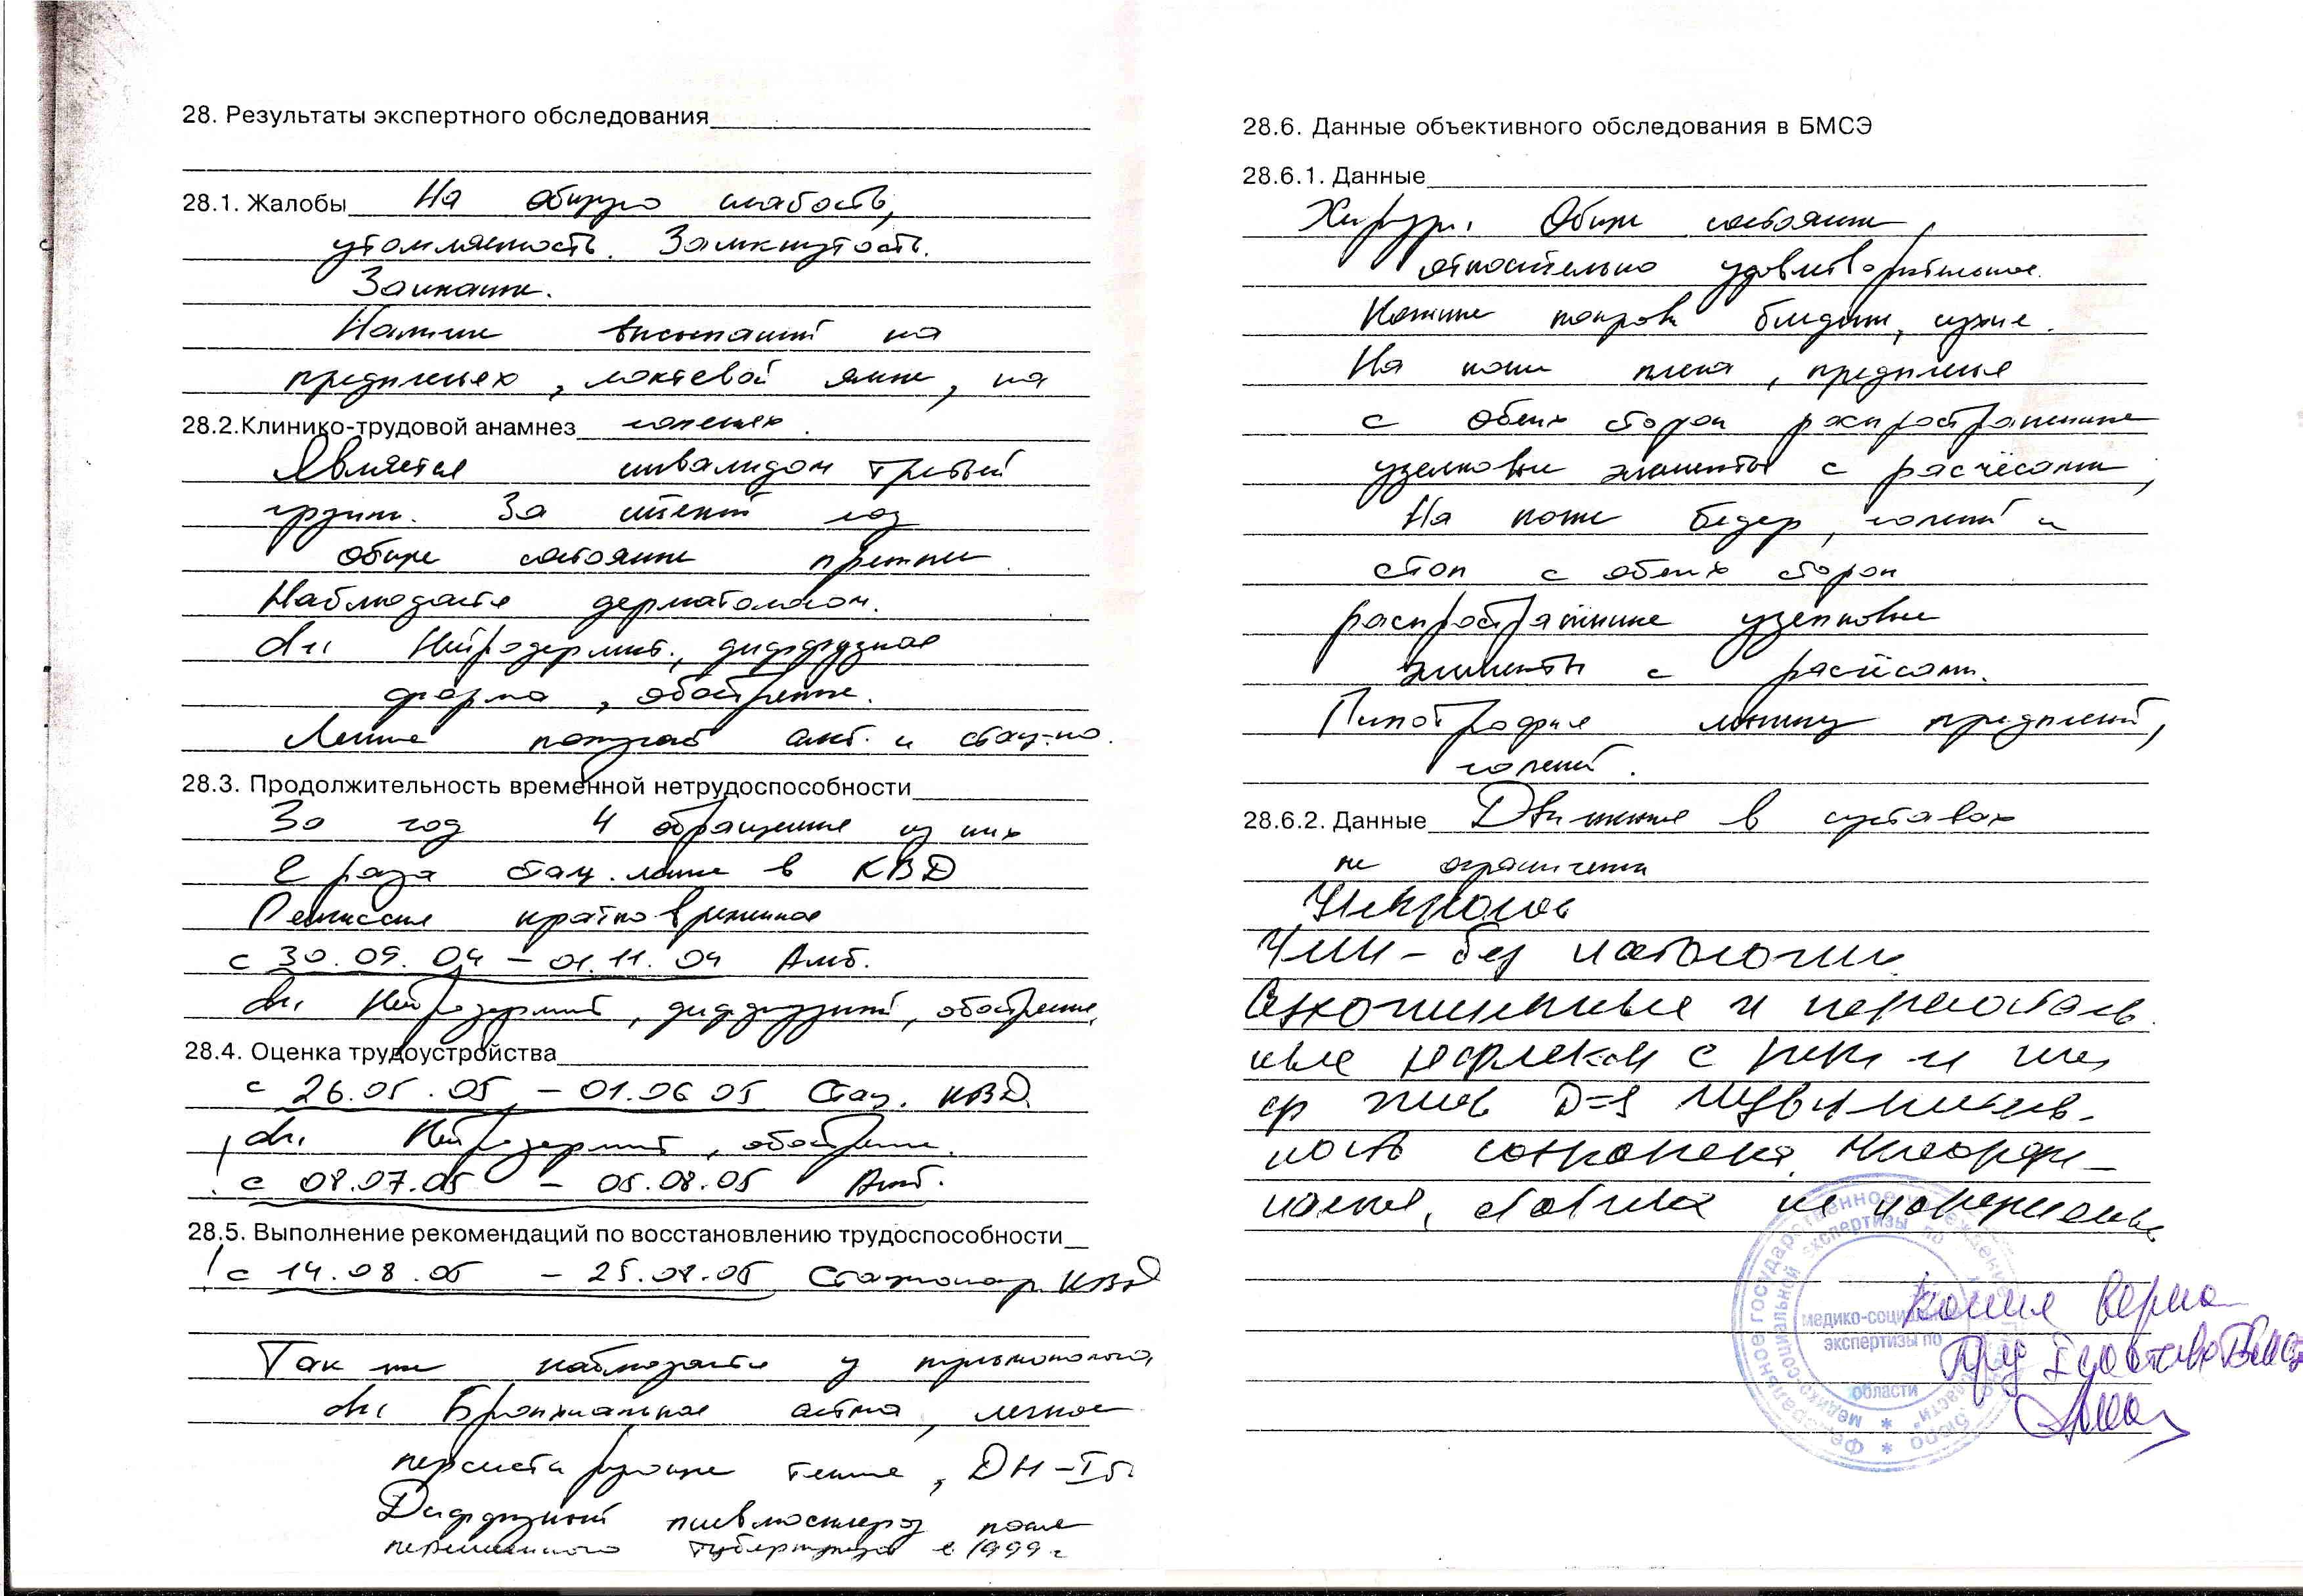 28. Результаты экспертного обследования
28.1. Жалобы На общую слабость,
утомляемость. Замкнутость.
Заикание.
Наличие высыпаний на
предплечьях, локтевой ямке, на
28.2.Клинико-трудовой анамнез голенях.
Является инвалидом третьей
группы. За истекший год
общее состояние прежнее.
Наблюдается дерматологом.
ds: Нейродермит, диффузная
форма, обострение.
Лечение получает амб. и стац-но.
28.3. Продолжительность временной нетрудоспособности
За год 4 обращения из них
2 раза стац. лечение в КВД
Ремиссия кратковременная
с 30.09.04 – 01.11.04 Амб.
ds: Нейродермит, диффузный, обострение.
28.4. Оценка трудоустройства
с 26.05.05 – 01.06 05 Стац. КВД.
ds: Нейродермит, обострение.
! с 08.07.05 – 05.08.05 Амб.
28.5. Выполнение рекомендаций по восстановлению трудоспособности
! с 14.08.05 – 25.08.05 Стационар КВД
Так же наблюдается у пульмонолога,
ds: Бронхиальная астма, легкое
персистирующее течение, ДН–I ст
Диффузный пневмосклероз после
перенесенного туберкулеза в 1999 г
28.6. Данные объективного обследования в БМСЭ
28.6.1. Данные
Хирург: Общее состояние
относительно удовлетворительное.
Кожные покровы бледные, сухие.
На коже плеча, предплечья
с обеих сторон распространенные
узелковые элементы с расчёсами,
На коже бедер, голеней и
стоп с обеих сторон
распространенные узелковые
элементы с расчёсами.
Гипотрофия мышц предплечий,
голеней.
28.6.2. Данные Движения в суставах
не ограничены
Невролог
ЧМН – без патологии
Сухожильные и периосталь
ные рефлексы с рук и ног
ср жив D=S Чувствитель-
ность сохранена. Координ-
нация, статика не нарушены
Копия верна
медико-социальной
экспертизы по
области
Федеральное государственное учреждение
бюро